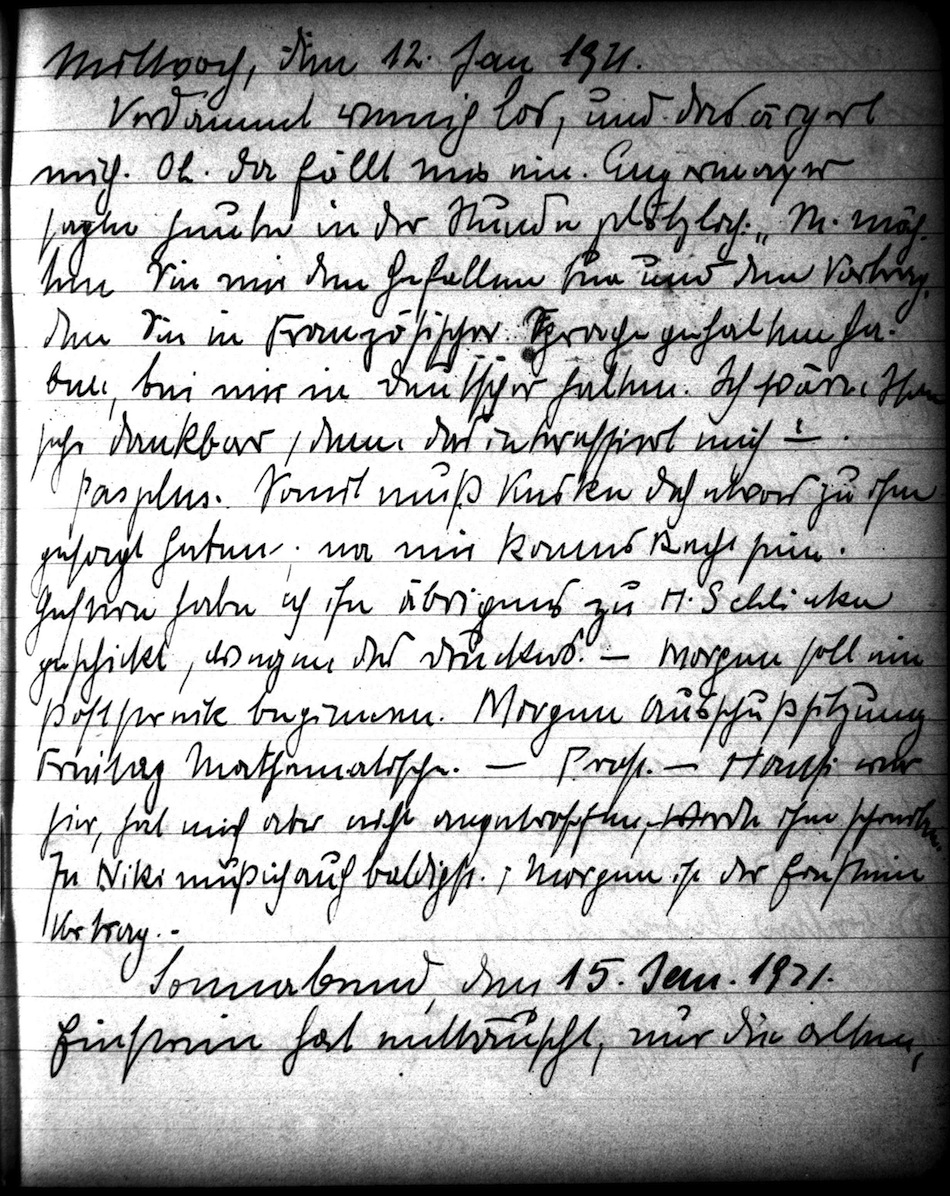 Mittwoch, den 12. Jan 1921.
Verdammt wenig los, und das ärgert
mich. Oh. da fällt mir ein. Angermayer
sagte heute in der Stunde plötzlich: „M. möch-
ten Sie mir den Gefallen tun und den Vortrag,
den Sie in Französischer Sprache gehalten ha-
ben, bei mir in deutscher halten. Ich wäre Ihnen
sehr dankbar, denn das interessiert mich —.
Pas plus. Somit muß doch etwas zu ihm
gesagt haben, na mir kanns Recht sein.
Gestern habe ich ihn übrigens zu H. Schlieker
geschickt, wegen des Druckes. — Morgen soll ein
Poststreik beginnen. Morgen Ausschußsitzung
Freitag Mathematische. — Prosit. — war
hier, hat mich aber nicht angetroffen, werde ihm schreiben.
Zu Niki muß ich auch baldigst.; Morgen ist der Einstein
Vortrag.-
Sonnabend, den 15. Jan. 1921.
Einstein hat enttäuscht, nur die alten,